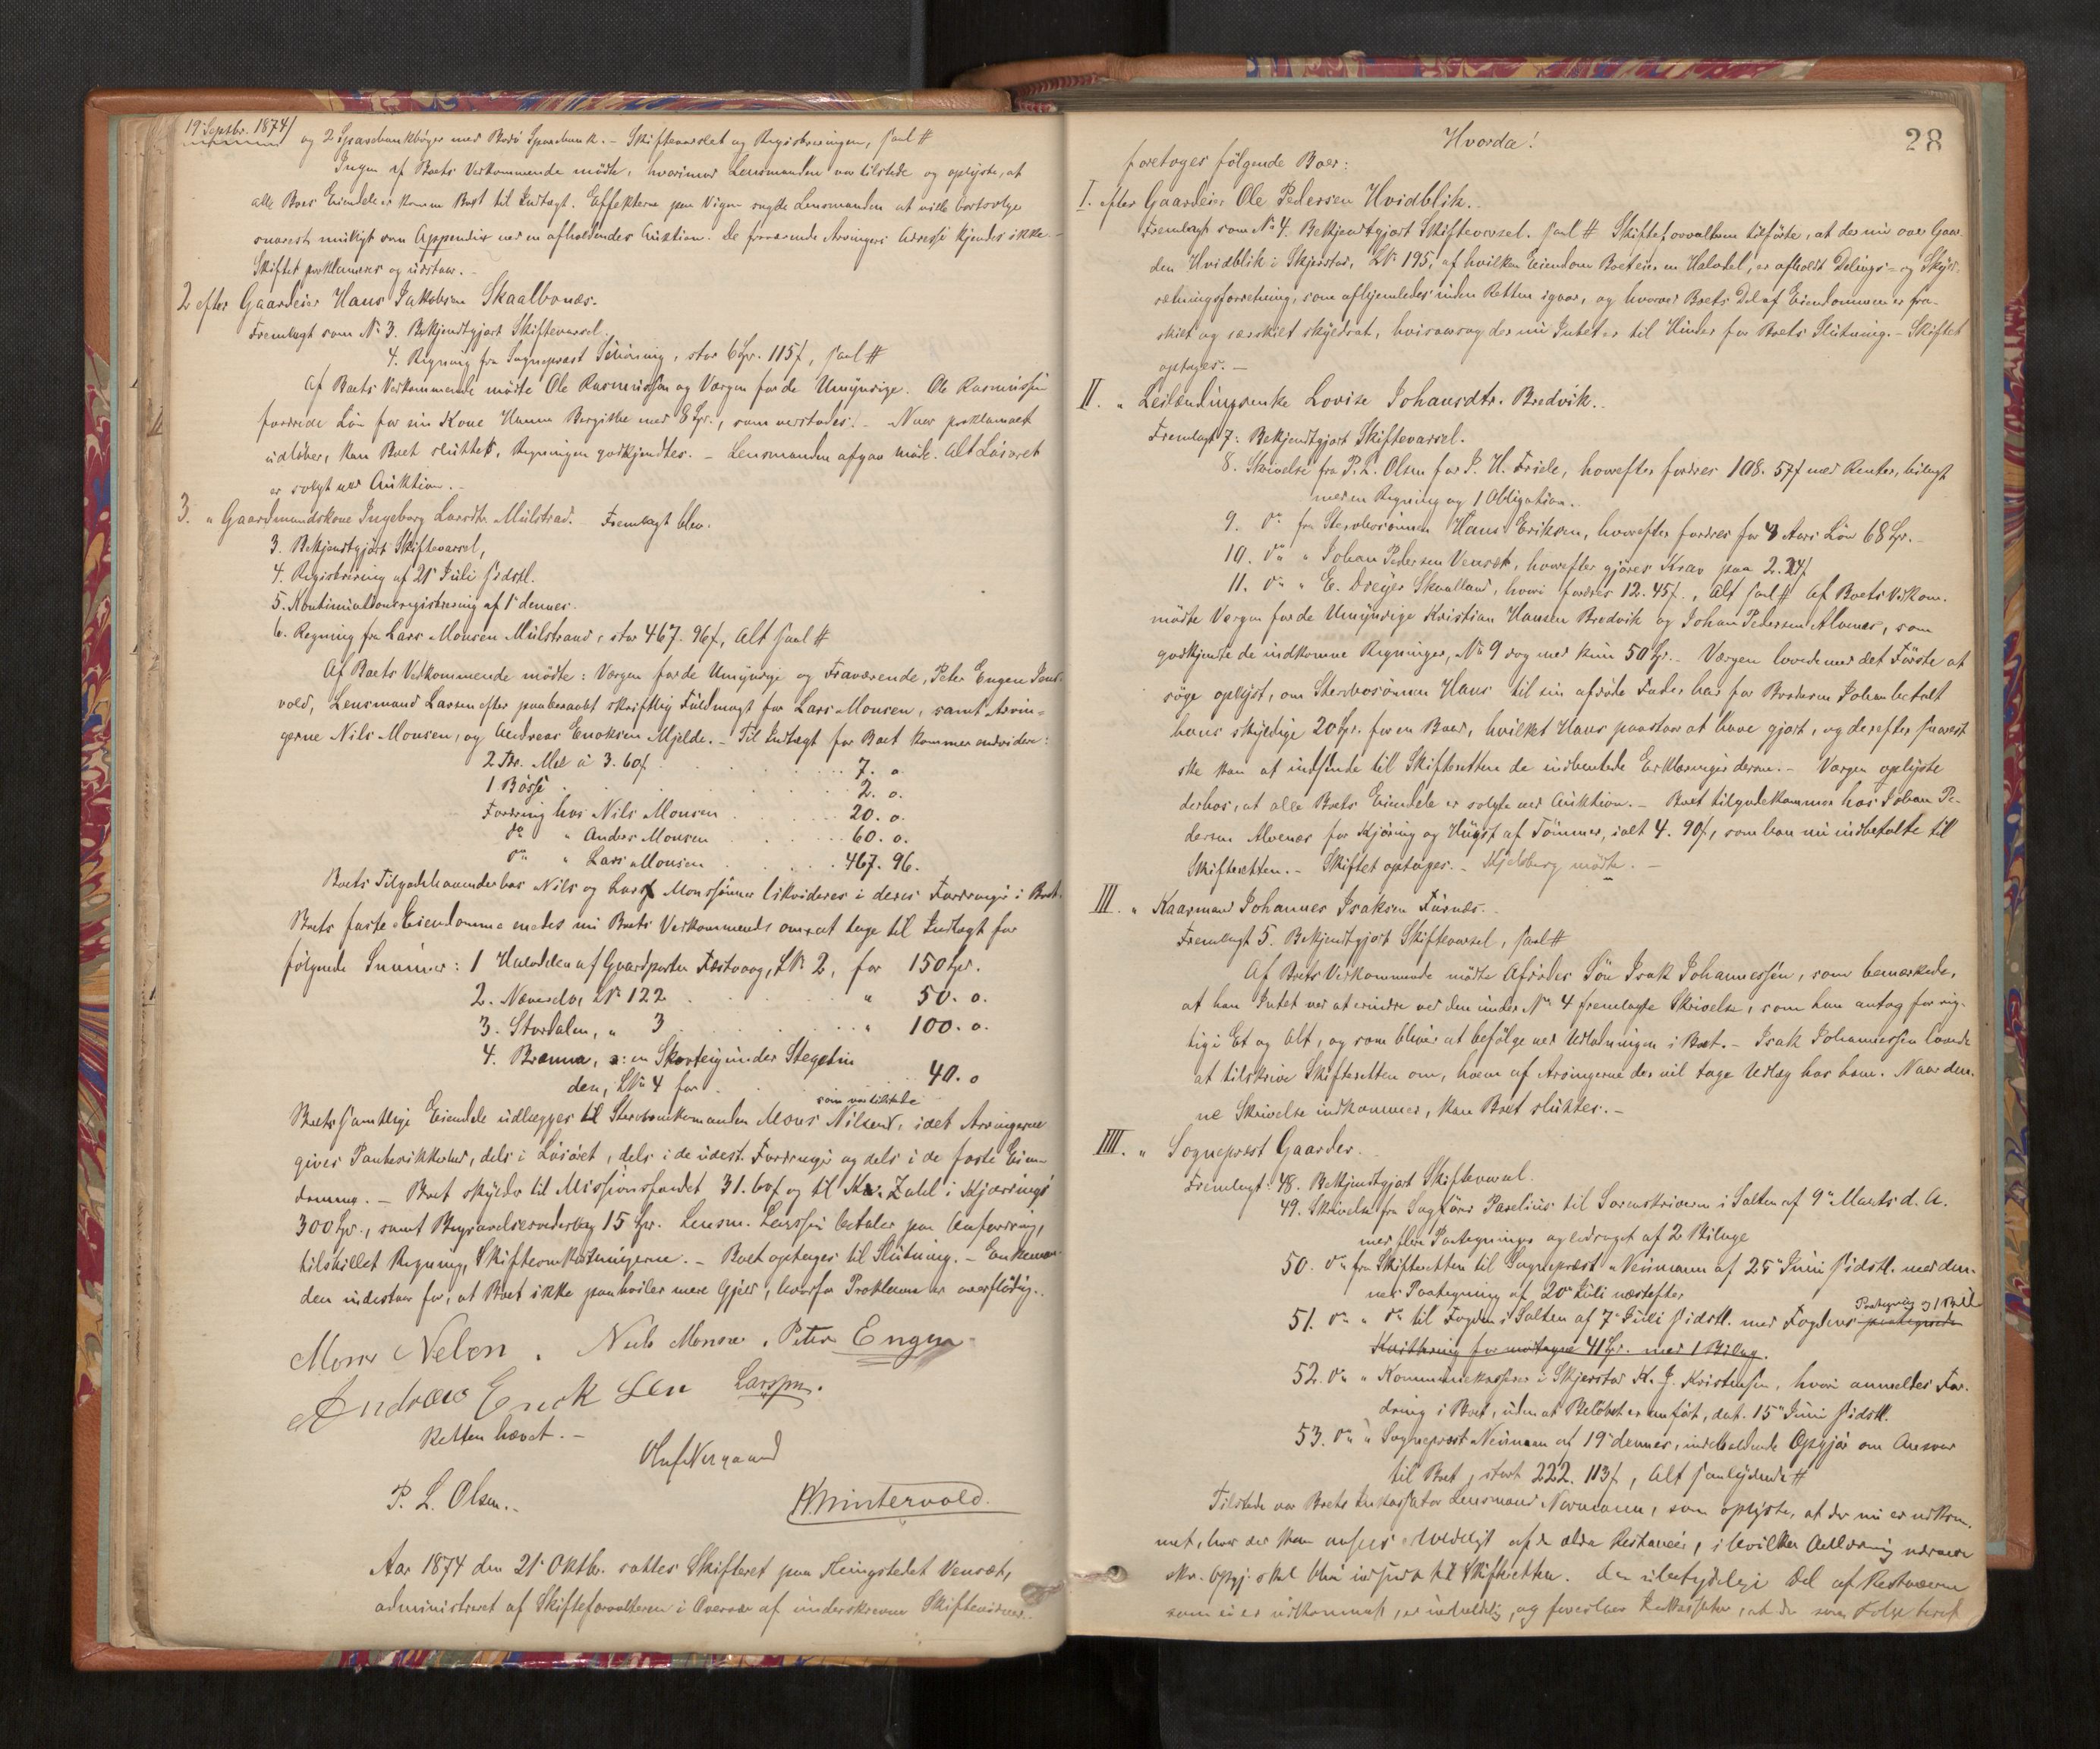 19 Septbr. 1874/
og 2 Sparebankbøger med Bodö Sparebank. – Skiftevarslet og Registreringen, saal #
Ingen af Boets Vedkommende mödte, hvorimod Lensmanden var tilstede og oplyste, at
alle Boets Eiendele er komne Boet til Indtægt. Effekterne paa Vigen sagde Lensmanden at ville bortsælge
snarest muligt som Appendix ved en afholdendes Auktion. De fraværende Arvingers Adresse kjendes ikke –
Skiftet proklameres og udstaar. –
2 efter Gaardeier Hans Jakobsen Skaalbonæs.
Fremlagt som No 3. Bekjendtgjort Skiftevarsel.
4. Regning fra Sognepræst , stor 6 Spd. 115 f, saal #
Af Boets Vedkommende mödte Ole Rasmussen og Værgen for de Umyndige. Ole Rasmussen
fordrede Lön for sin Kone Hanna Bergitte med 8 Spd., som . – Naar proklamaet
udlöber, kan Boet sluttes, Regningen godkjendtes. – Lensmanden afgav möde. Alt Lösöret
er solgt ved Auktion. –
3. " Gaardmandskone Ingeborg Larsdtr. Mulstrad. Fremlagt blev.
3. Bekjendtgjort Skiftevarsel,
4. Registrering af 21 Juli sidstl.
5. Kontinuationsregistrering af 1 dennes.
6. Regning fra Lars Monsen Mulstrand, stor 467. 96 f, alt saal #
Af Boets Vedkommende mödte: Værgen for de Umyndige og Fraværende, Peter Engen
vold, Lensmand Larsen efter paaberaabt skriftlig Fuldmagt for Lars Monsen, samt Arvin-
gerne Nils Monsen, og Andreas Enoksen Mjelde. – Til Indtægt for Boet kommer endvidere:
2 Tdr. Mel à 3. 60 f. 7. o
1 Bösse 2. o.
Fordring hos Nils Monsen 20. o.
do " Anders Monsen 60. o.
do " Lars Monsen 467. 96.
Boets Tilgodehavende hos Nils og Lars Monssönner likvideres i deres Fordringer i Boet.
Boets faste Eiendomme enedes nu Boets Vedkommende om at tage til Indtægt for
fölgende Summer: 1 Halvdelen af Gaardparten Festvaag, L No 2, for 150 Spd.
2. L No 122 " 50. o.
3. Stordalen, " 3 " 100. o.
4. Brenna, : en Skovteig under Stegetin
den, L No 4 for 40. o
som var tilstede
Boets samtlige Eiendele udlægges til Stervboenkemanden Mons Nilsen, idet Arvingerne
gives Pantesikkerhed, dels i Lösöret, dels i de udest. Fordringer og dels i de faste Eien-
domme. – Boet skylder til Missionsfondet 31. 60 f og til Kr. Zahl i Kjærringö
300 Spd., samt Begravelsesvederlag 15 Spd. Lensm. Larssen betaler paa Anfordring,
tilstillet Regning, Skifteomkostningerne. – Boet optages til Slutning. – Enkeman-
den indestaar for, at Boet ikke paahviler mere Gjæld, hvorfor Proklama er overflödig.
Mons Nelsen. Nils Monsen. Peter Engen
Andreas Enok Sen Larssen.
Retten hævet. –
Oluf Nergaard
P. L. Olsen. –
Wintervold.
Aar 1874 den 21 Oktbr. sattes Skifteret paa Thingstedet Vensæt,
administreret af Skifteforvalteren i Overvær af underskrevne Skiftevidner.
28
Hvorda!
foretages fölgende Boer:
I. efter Gaardeier Ole Pedersen Hvidblik.
Fremlagt som No 4. Bekjendtgjort Skiftevarsel. saal # Skifteforvalteren tilförte, at der nu over Gaar-
den Hvidblik i Skjerstad, L No 195, af hvilken Eiendom Boet eier en Halvdel, er afholdt Delings- og Skyld-
sætningsforretning, som afhjemledes inden Retten igaar, og hvorved Boets Del af Eiendommen er fra-
skilt og særskilt skyldsat, hvisaarsag der nu Intet er til Hinder for Boets Slutning. – Skiftet
optages. –
II. " Leilændingsenke Lovise Johansdtr. Bredvik.
Fremlagt 7: Bekjendtgjort Skiftevarsel.
8. Skrivelse fra P. L. Olsen for J. H. Friele, hvorefter fordres 108. 57 f med Renter, bilagt
med en Regning og 1 Obligation.
9. do fra Stervbosönnen Hans Eriksen, hvorefter fordres for 4 Aars Lön 68 Spd.
10. do " Johan Pedersen Vensæt, hvorefter gjöres Krav paa 2. 24 f
11. do " E. Dreyer Skaalland, hvori fordres 12. 45 f., alt saal # Af Boets Vedkom.
mödte Værgen for de Umyndige Kristian Hansen Bredvik og Johan Pedersen Alvenes, som
godkjendte de indkomne Regninger, No 9 dog med kun 50 Spd. – Værgen lovede med det Förste at
söge oplyst, om Stervbosönnen Hans til sin afdöde Fader har for Broderen Johan betalt
hans skyldige 20 Spd. for en Baad, hvilket Hans paastaar at have gjort, og derefter snarest
ske kan at indsende til Skifteretten de indhentede Erklæringer derom. – Værgen oplyste
derhos, at alle Boets Eiendele er solgte ved Auktion. – Boet tilgodekommer hos Johan Pe-
dersen Alvenes for Kjöring og Hugst af Tömmer, ialt 4. 90 f, som han nu indbetalte til
Skifteretten. – Skiftet optages. – Mjelsberg mödte. –
III. " Kaarmand Johannes Isaksen Furnes.
Fremlagt 5. Bekjendtgjort Skiftevarsel, saal #
Af Boets Vedkommende mödte Afdödes Sön Isak Johannessen, som bemærkede,
at han Intet ved at erindre ved den under No 4 fremlagte Skrivelse, som han antog for rig-
tig i Et og Alt, og som bliver at befölge ved Udlodningen i Boet. – Isak Johannessen lovede
at tilskrive Skifteretten om, hvem af Arvingerne der vil tage Udlæg hos ham. Naar den-
ne Skrivelse indkommer, kan Boet sluttes. –
IIII. " Sognepræst Gaarder.
Fremlagt: 48. Bekjendtgjort Skiftevarsel.
49. Skrivelse fra Sagförer Paselius til Sorenskriveren i Salten af 9 Marts d. A.
med flere Paategninger og ledsaget af 2 Bilage
50. do fra Skifteretten til Sognepræst Neumann af 25 Juni sidstl. med den-
nes Paategning af 20 Juli næstefter
51. do " do til Fogden i Salten af 7 Juli sidstl. med Fogdens Paategning og 1 Bil
Kvittering for modtagne 41 Spd. med 1 Bilag.
52. do " Kommunekasserer i Skjerstad K. J. Kristensen, hvori anmeldes For-
dring i Boet, uden at Belöbet er anfört, dat. 15 Juni sidstl.
53. do " Sognepræst Neumann af 19 dennes, indeholdende Opgjör om Ansvar
til Boet, stort 222. 113 f, Alt saalydende #
Tilstede var Boets Inkassator Lensmand Normann, som oplyste, at der nu er indkom-
met, hvad der kan ansees erholdeligt af de ældre Restancer, i hvilken Anledning nærmere
skr. Opgj. skal blive indsendt til Skifteretten. Den ubetydelige Del af Restancerne
som ei er indkommet, er uerholdelig, og foreslaar Inkassator, at de som Fölge heraf